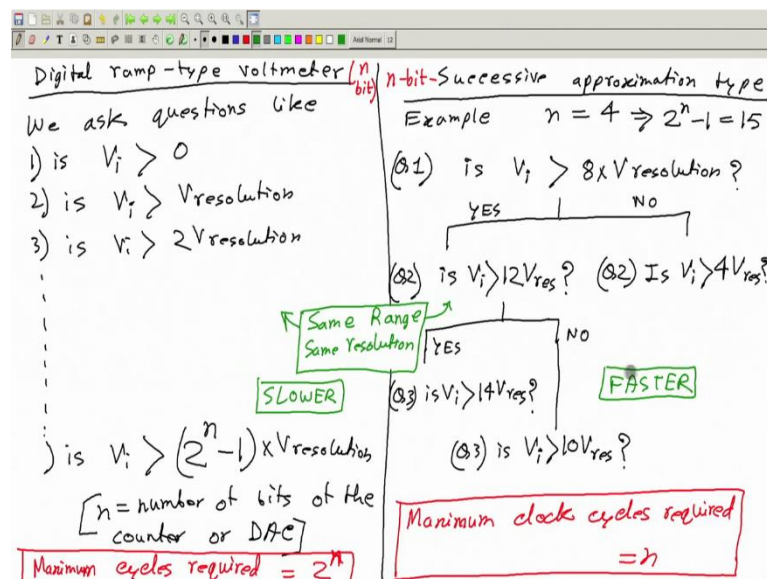 Arial Normal 12
Digital ramp-type voltmeter (n bit)
We ask questions like
1) is Vi > 0
2) is Vi > Vresolution
3) is Vi > 2Vresolution
) is Vi > (2^n - 1) x Vresolution
[n = number of bits of the
counter or DAC]
Maximum cycles required = 2^n
Same Range
Same resolution
SLOWER
n-bit-Successive approximation type
Example n = 4 ⇒ 2^n - 1 = 15
(Q1) is Vi > 8 x V resolution ?
YES NO
(Q2) is Vi > 12Vres ? (Q2) Is Vi > 4Vres?
YES NO
(Q3) is Vi > 14Vres?
FASTER
(Q3) is Vi > 10Vres ?
Maximum clock cycles required
= n